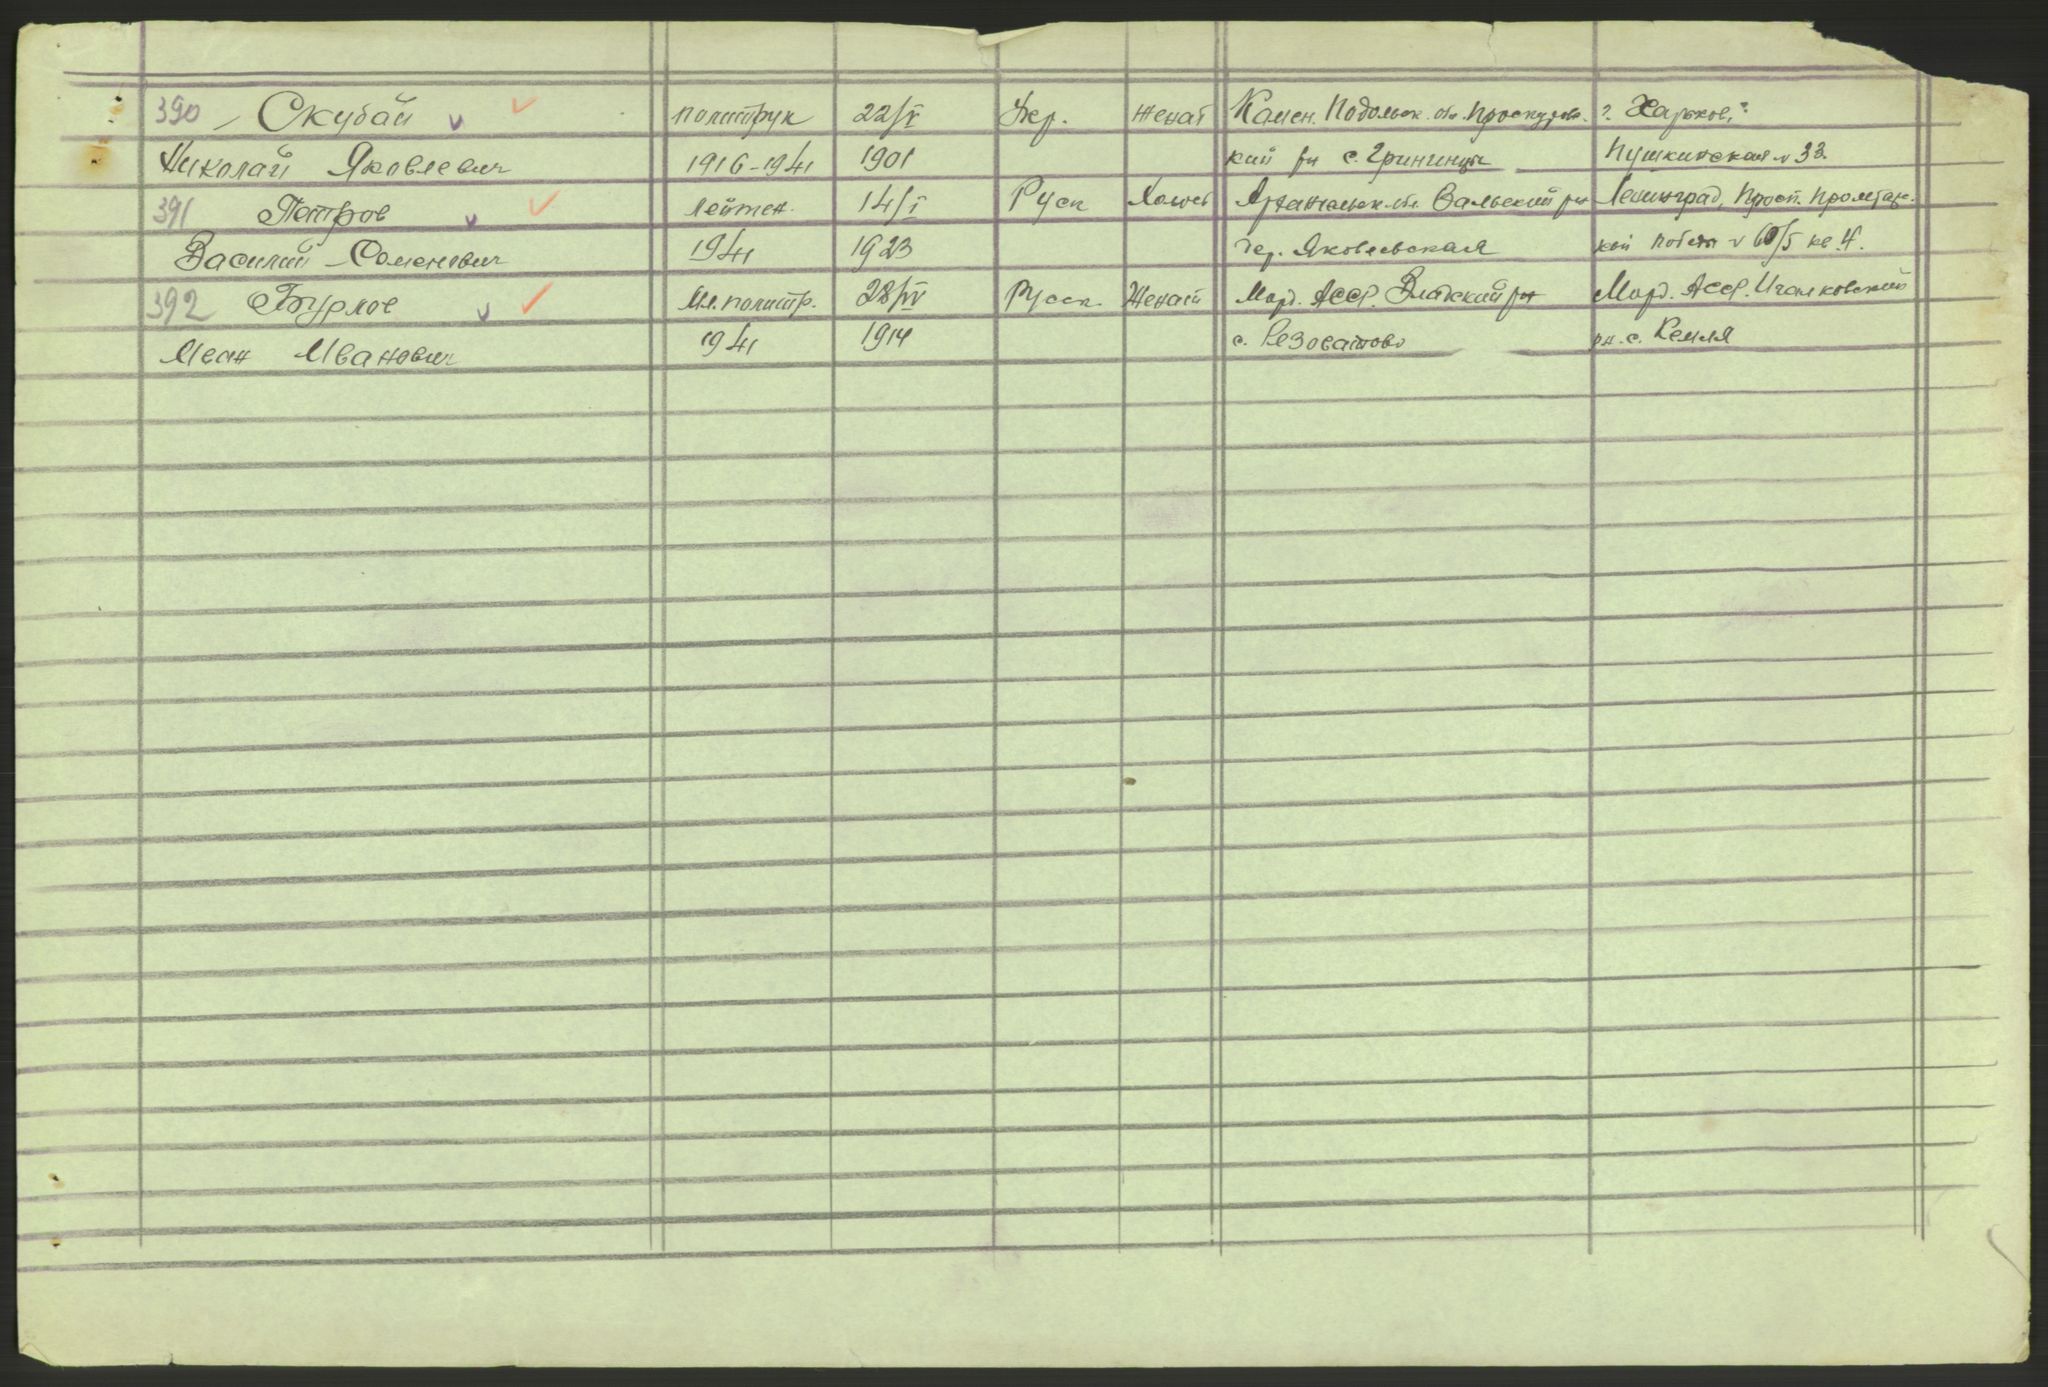 390 Скубай политрук 22/V Укр. женат Камен. Подольск. обл. Проскуров- г. Харьков,
Николай Яковлевич 1916-1941 1901 кий рн с. Гринчинцы Пушкинская № 33.
391 Петров Лейтен. 14/I Русск Холост Архангельск. обл. Вальский рн Ленинград, Просп. Пролетар.
Василий Семенович 1941 1923 дер. Яковлевская кой победы № 60/5 кв 4.
392 Бурлов Мл. политр. 28/IV Русск. Женат Морд. АССР. Владский рн Морд. АССР. Ичалковский
Иван Иванович 1941 1914 с. Резоватово рн. с. Кемля